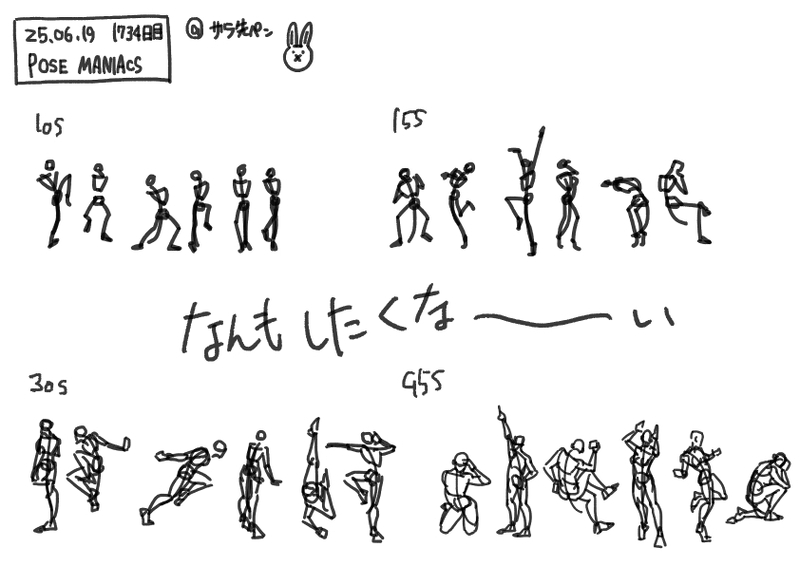 25.06.19 1734日目
POSE MANIACS
@サラ先ペン
10s
15s
なんもしたくな〜い
30s
45s